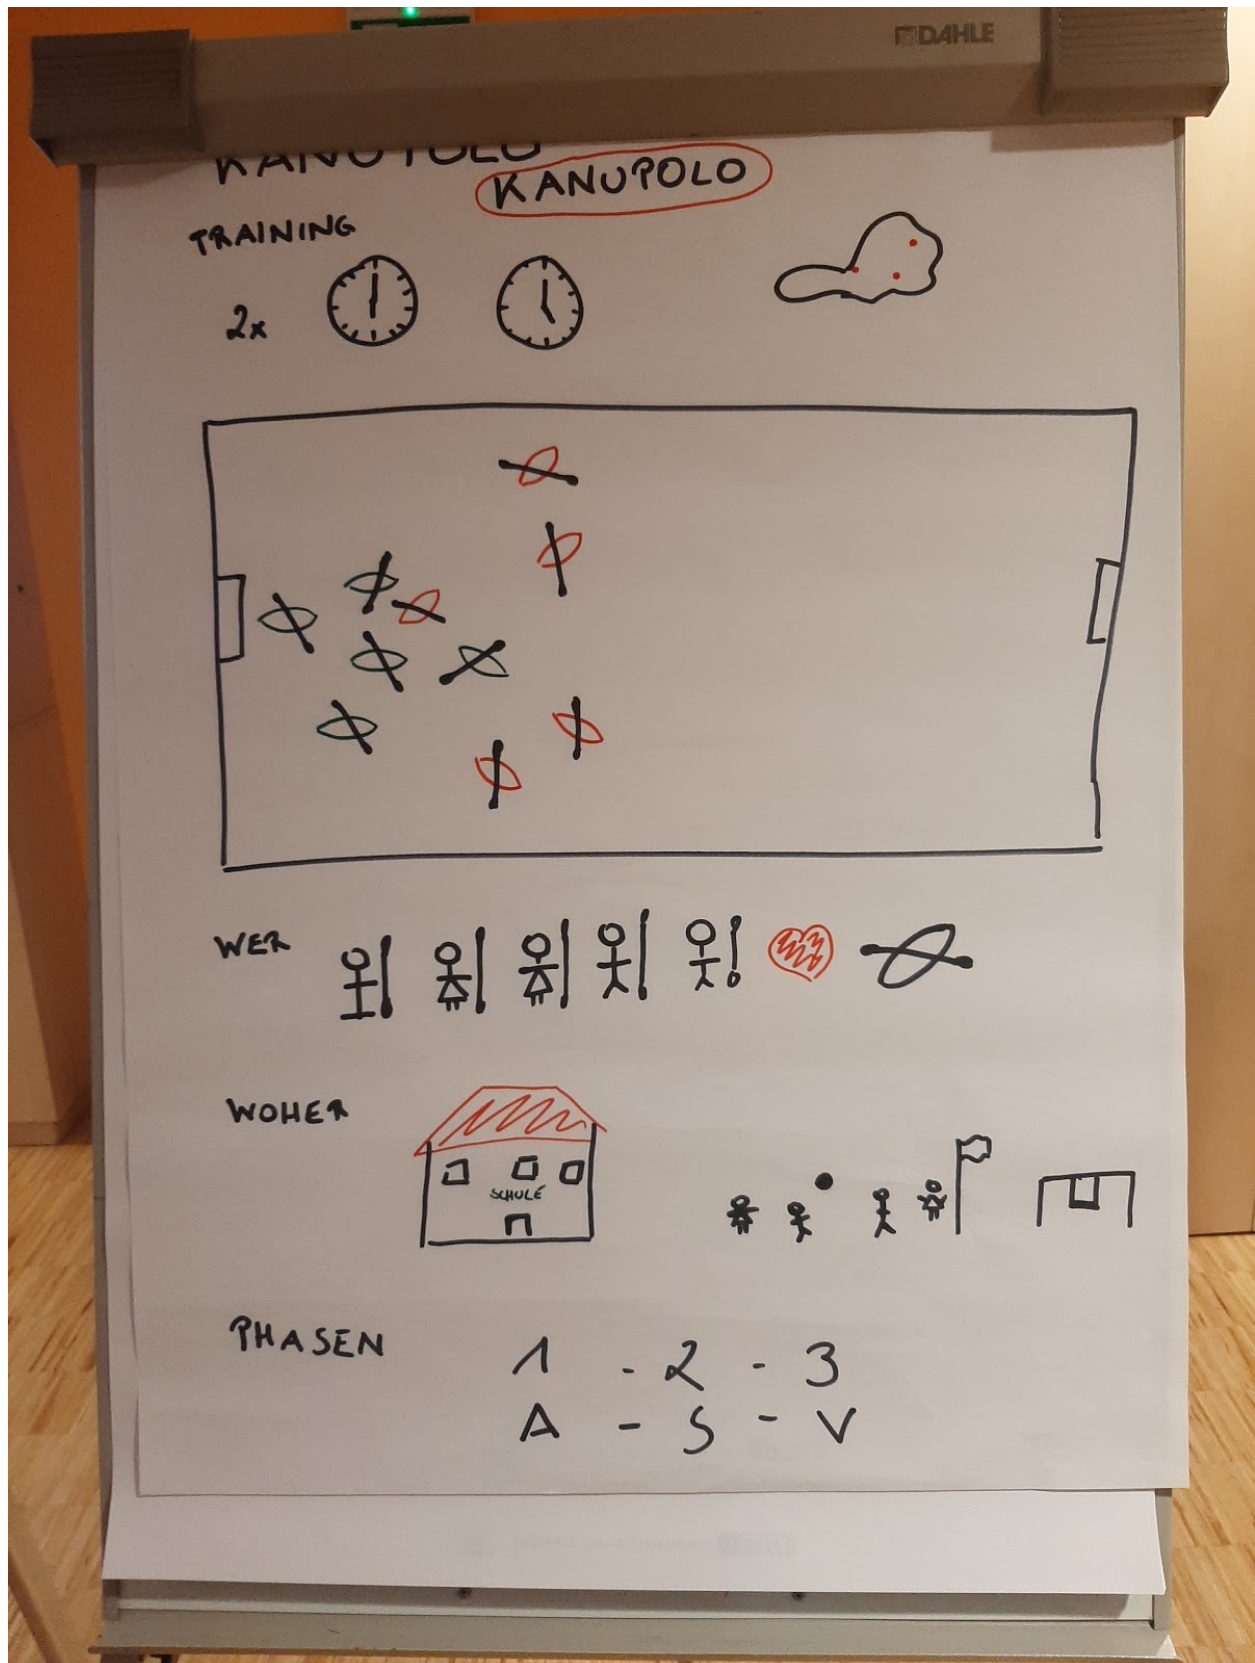 DAHLE
KANUPOLO
KANUPOLO
TRAINING
2x
WER
WOHER
SCHULE
PHASEN
1 - 2 - 3
A - S - V